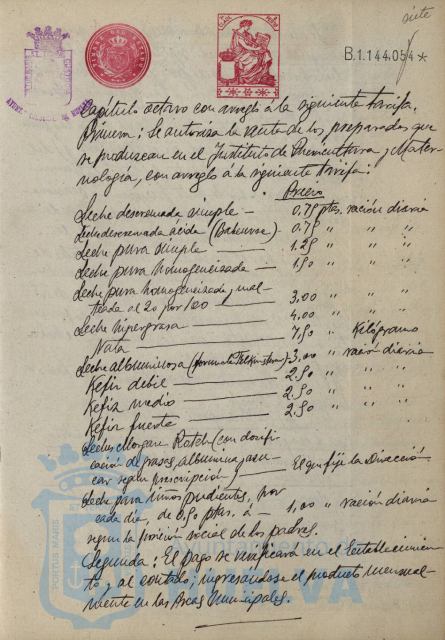 siete
B.1.144.054*
Capítulo octavo con arreglo a la siguiente tarifa.
Primera: Se autoriza la venta de los preparados que
se produzcan en el Instituto de Puericultura y Mater-
nología, con arreglo a la siguiente tarifa:
Precio
Leche descremada simple — 0,75 ptas. ración diaria
Leche descremada ácida (Babeurre) — 0,75 " " "
Leche pura simple — 1,25 " " "
Leche pura homogeneizada — 1,50 " " "
Leche pura homogeneizada y mal-
teada al 20 por 100 — 3,00 " " "
Leche hipergrasa — 4,00 " " "
Nata — 7,50 " Kilógramo
Leche albuminosa (formula ) — 3,00 " ración diaria
Kefir debil — 2,50 " " "
Kefir medio — 2,50 " " "
Kefir fuerte — 2,50 " " "
Leches Morgan Rotch (con dosifi-
cación de grasas, albumina, azu-
car segun prescripción) — El que fije la Dirección
Leche para niños pudientes, por
cada dia, de 0,50 ptas. á — 1,00 " ración diaria
segun la posición social de los padres.
Segunda: El pago se verificará en el Establecimien-
to y al contado; ingresandose el producto mensual-
mente en las Arcas Municipales.
PORTUS MARIS